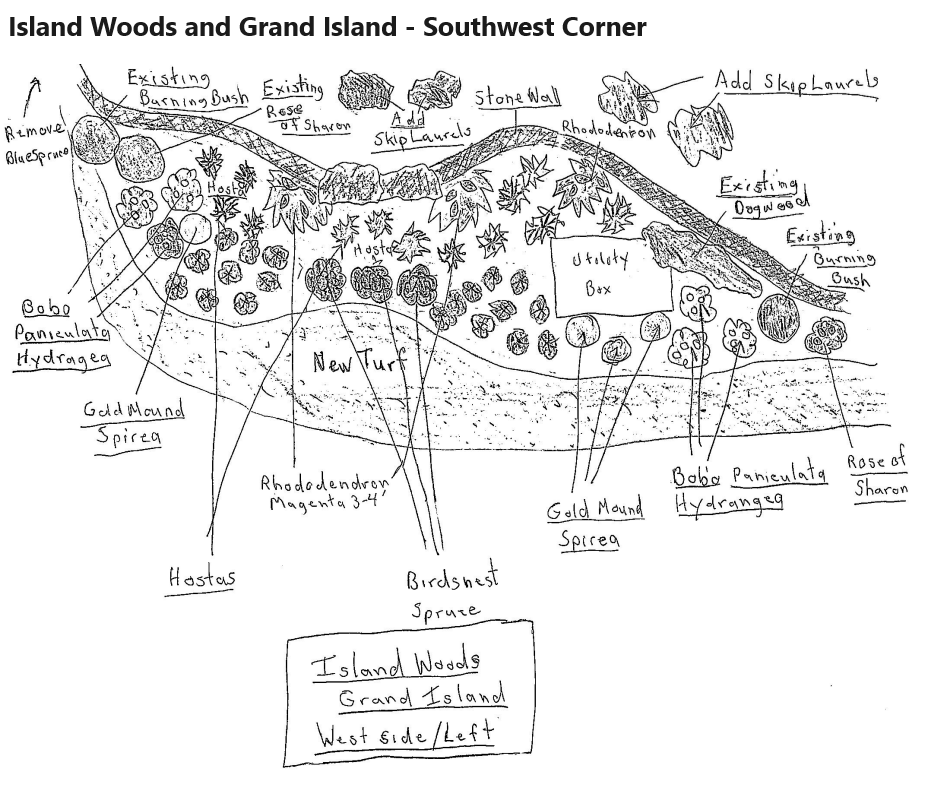 Island Woods and Grand Island - Southwest Corner
Existing
Burning Bush
Existing
Rose
of Sharon
Add
Skip Laurels
Stone Wall
Rhododendron
Add Skip Laurels
Remove
Blue Spruce
Hosta
Existing
Dogwood
Existing
Burning
Bush
Hosta
Utility
Box
Bobo
Paniculata
Hydragea
New Turf
Gold Mound
Spirea
Rhododendron
Magenta 3-4'
Gold Mound
Spirea
Bobo Paniculata
Hydrangea
Rose of
Sharon
Hostas
Birdsnest
Spruce
Island Woods
Grand Island
West side/Left